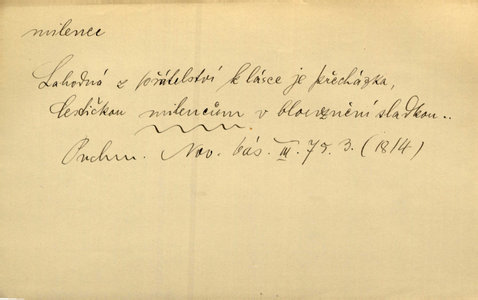 milenec
Lahodná z přátelství k lásce je přecházka,
milencům v blouznění sladkou..
Puchm. Nov. bás. III. 3. (1814)